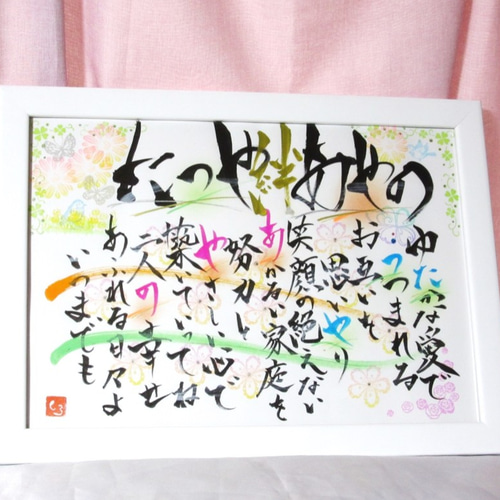 たつや 絆 あやの
ゆたかな愛で
つつまれる
お互いを
思いやり
笑顔の絶えない
あかるい家庭を
努力と
やさしい心で
築いていってね
二人の幸せ
あふれる日々よ
いつまでも